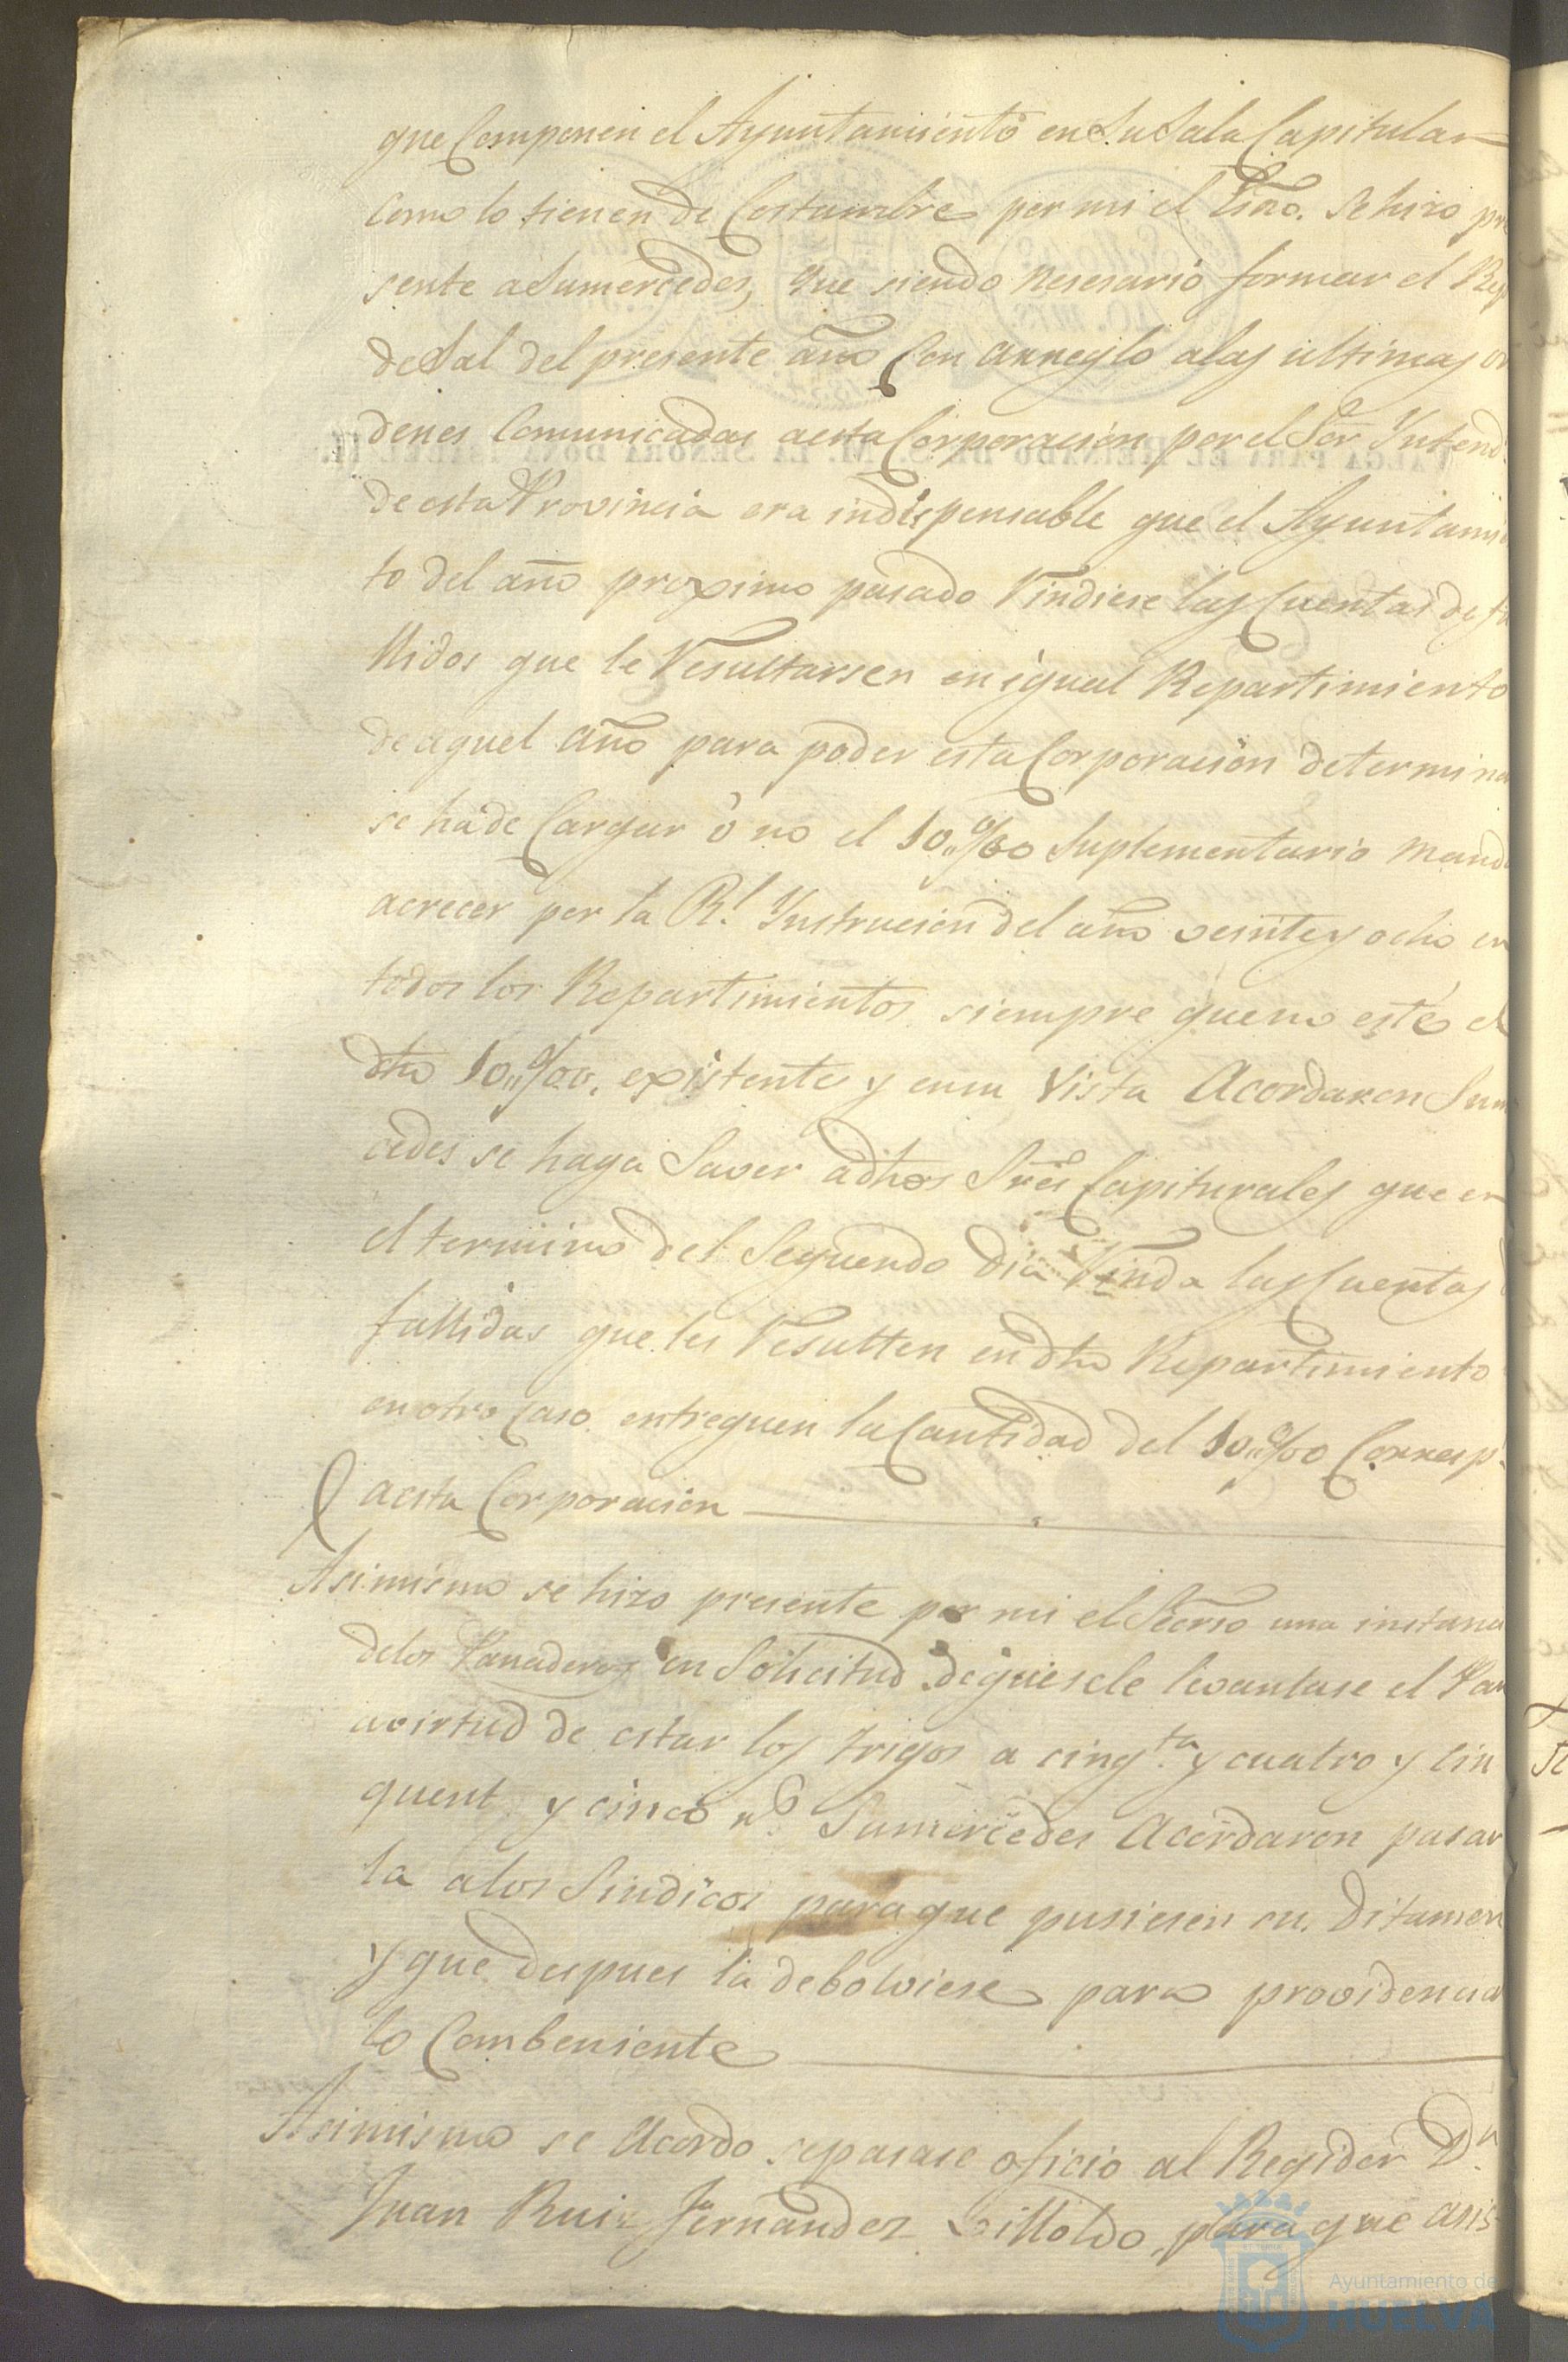 que Componen el Ayuntamiento en Su Sala Capitular
como lo tienen de Costumbre por mi el Esno. se hizo pre
sente a Sumercedes, que siendo nesesario formar el Rep
de Sal del presente año Con arreglo a las ultimas or
denes Comunicadas a esta Corporacion por el Sor. Yntend.
de esta Provincia era indispensable que el Ayuntamien
to del año proximo pasado Rindiese las Cuentas de fa
llidos que le Resultarsen en igual Repartimiento
de aquel año para poder esta Corporacion determinar
se ha de Cargar ó no el 10,,%00 Suplementario mand
acrecer por la Rl. Ynstrucion del año veinte y ocho en
todos los Repartimientos siempre que no esté el
dho 10,,%00. existente y en su Vista Acordaron Sum
cedes se haga Saver a dhos Sres Capiturales que en
el termino del Segundo Dia Rinda las Cuentas
fallidas que les Resulten en dho Repartimiento
en otro Caso entreguen la Cantidad del 10,,%00 Corresp.
a esta Corporacion
Asimismo se hizo presente por mi el Secrio una instanc
de los Panaderos en Solicitud de que se le levantase el Pan
a virtud de estar los trigos a cinqta. y cuatro y cin
quent y cinco rs. Sumercedes Acordaron pasar
la a los Sindicos para que pusiesen su Ditamen
y que despues la debolviese para providencia
lo Combeniente
Asimismo se Acordo se pasase oficio al Regidor Dn.
Juan Ruiz Fernandez para que asis
Ayuntamiento de
HUELVA